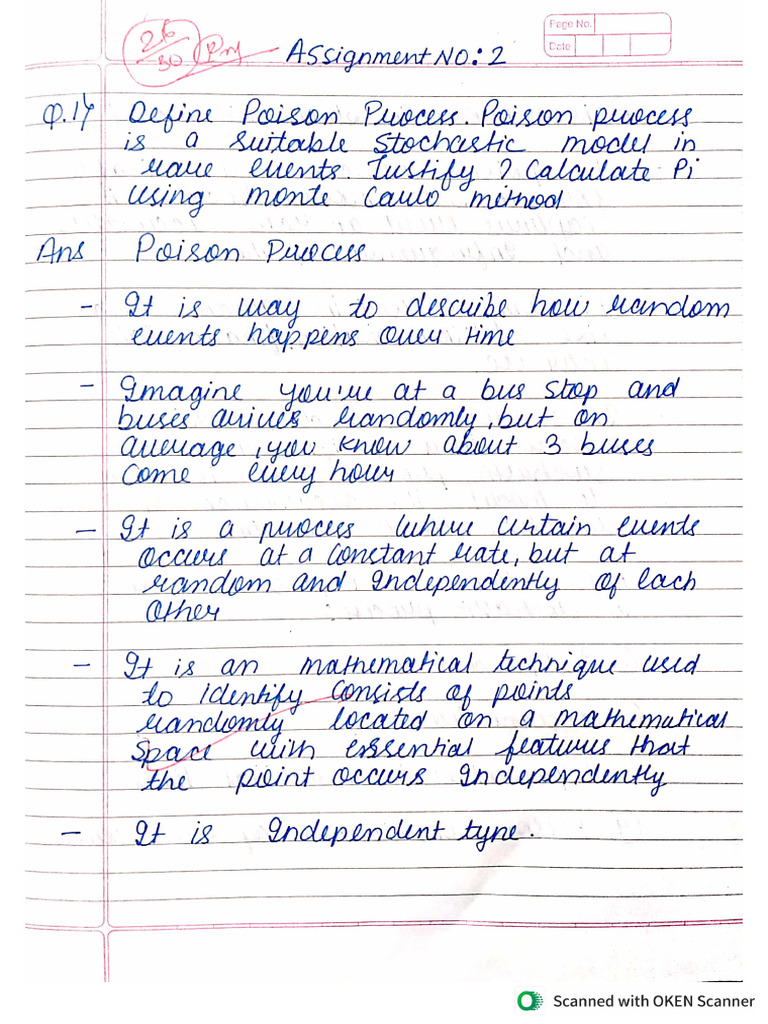 26
30
Assignment NO: 2
Page No.
Date
Q.1) Define Poison Process. Poison process
is a suitable stochastic model in
rare events. Justify ? Calculate Pi
using monte Carlo method
Ans Poison Process
- It is way to describe how random
events happens over time
- Imagine you're at a bus stop and
buses arives randomly, but on
average, you know about 3 buses
come every hour
- It is a process where certain events
occurs at a constant rate, but at
random and Independently of each
other
- It is an mathematical technique used
to identify consists of points
randomly located on a mathematical
space with essential features that
the point occurs Independently
- It is Independent type.
Scanned with OKEN Scanner